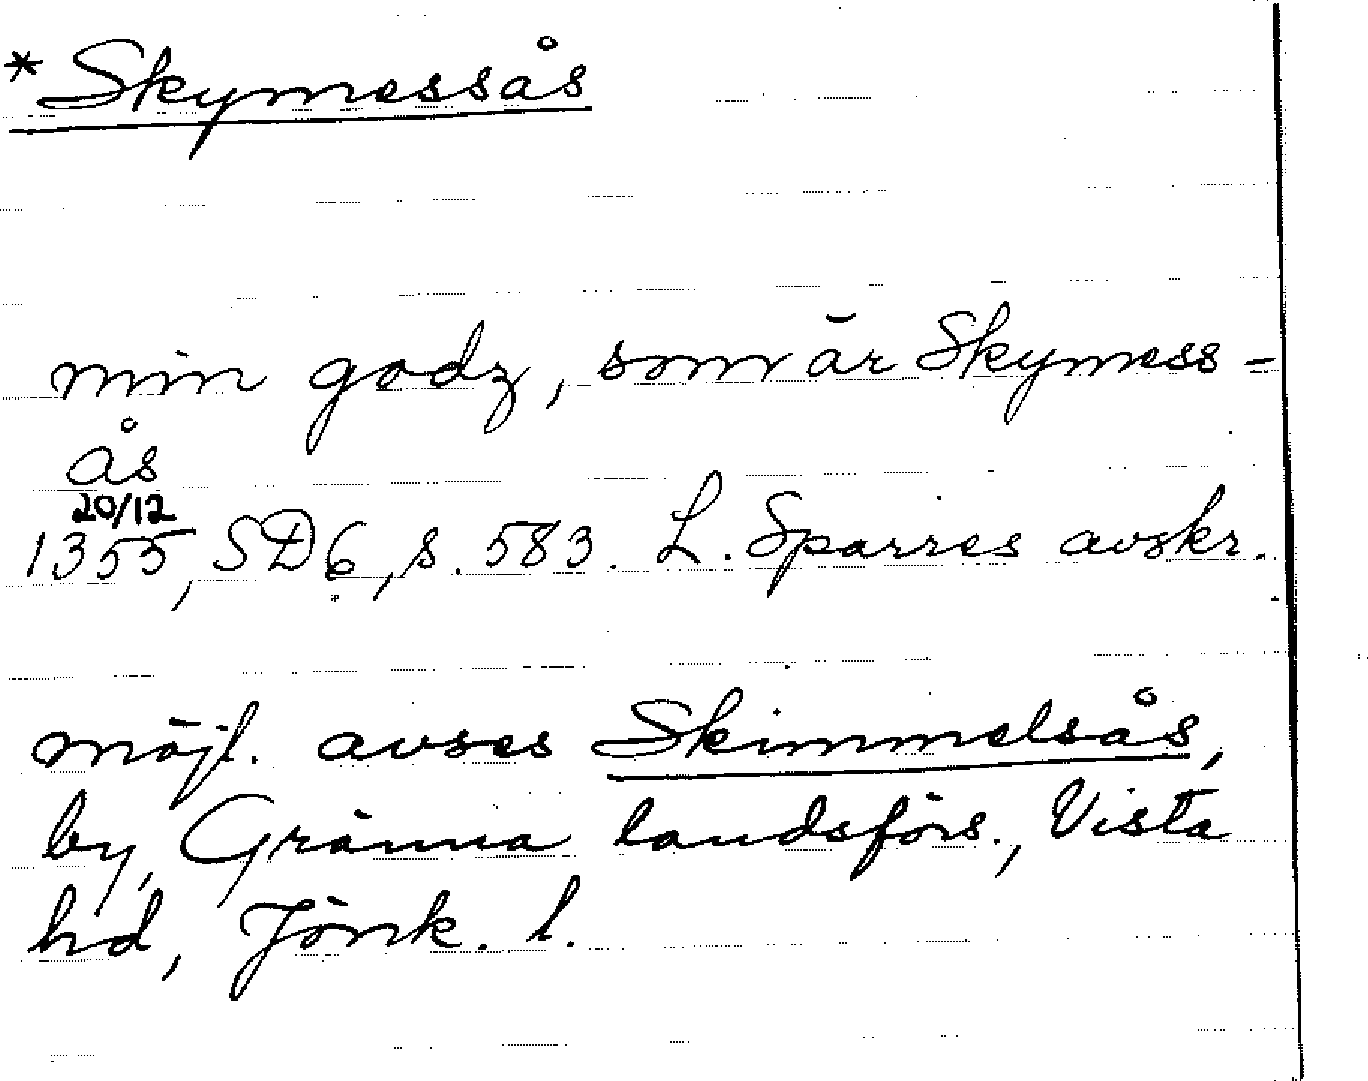 *Skymessås
min godz, som är Skymess=
ås
20/12
1355, SD6, s. 583. L. Sparres avskr.
möjl. avses Skimmelsås,
by, Gränna landsförs., Vista
hd, Jönk. l.